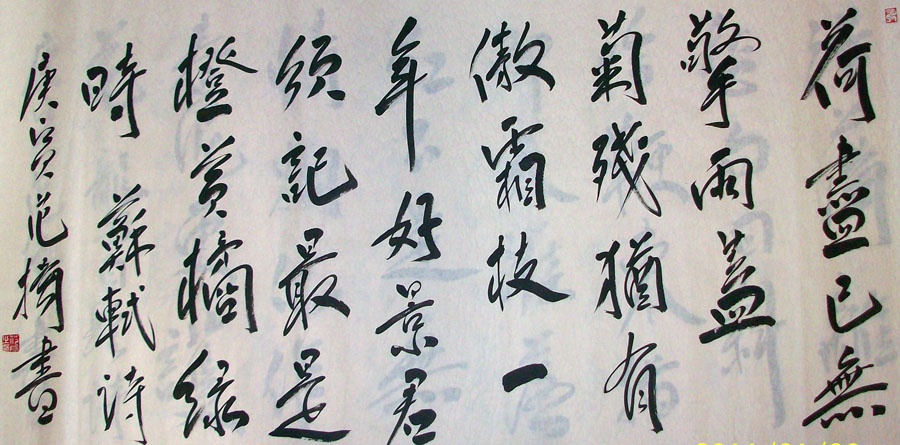 荷盡已無
擎雨蓋
菊残猶有
傲霜枝一
年好景君
須記最是
橙黄橘緑
時 蘇軾詩
庚寅范揚書